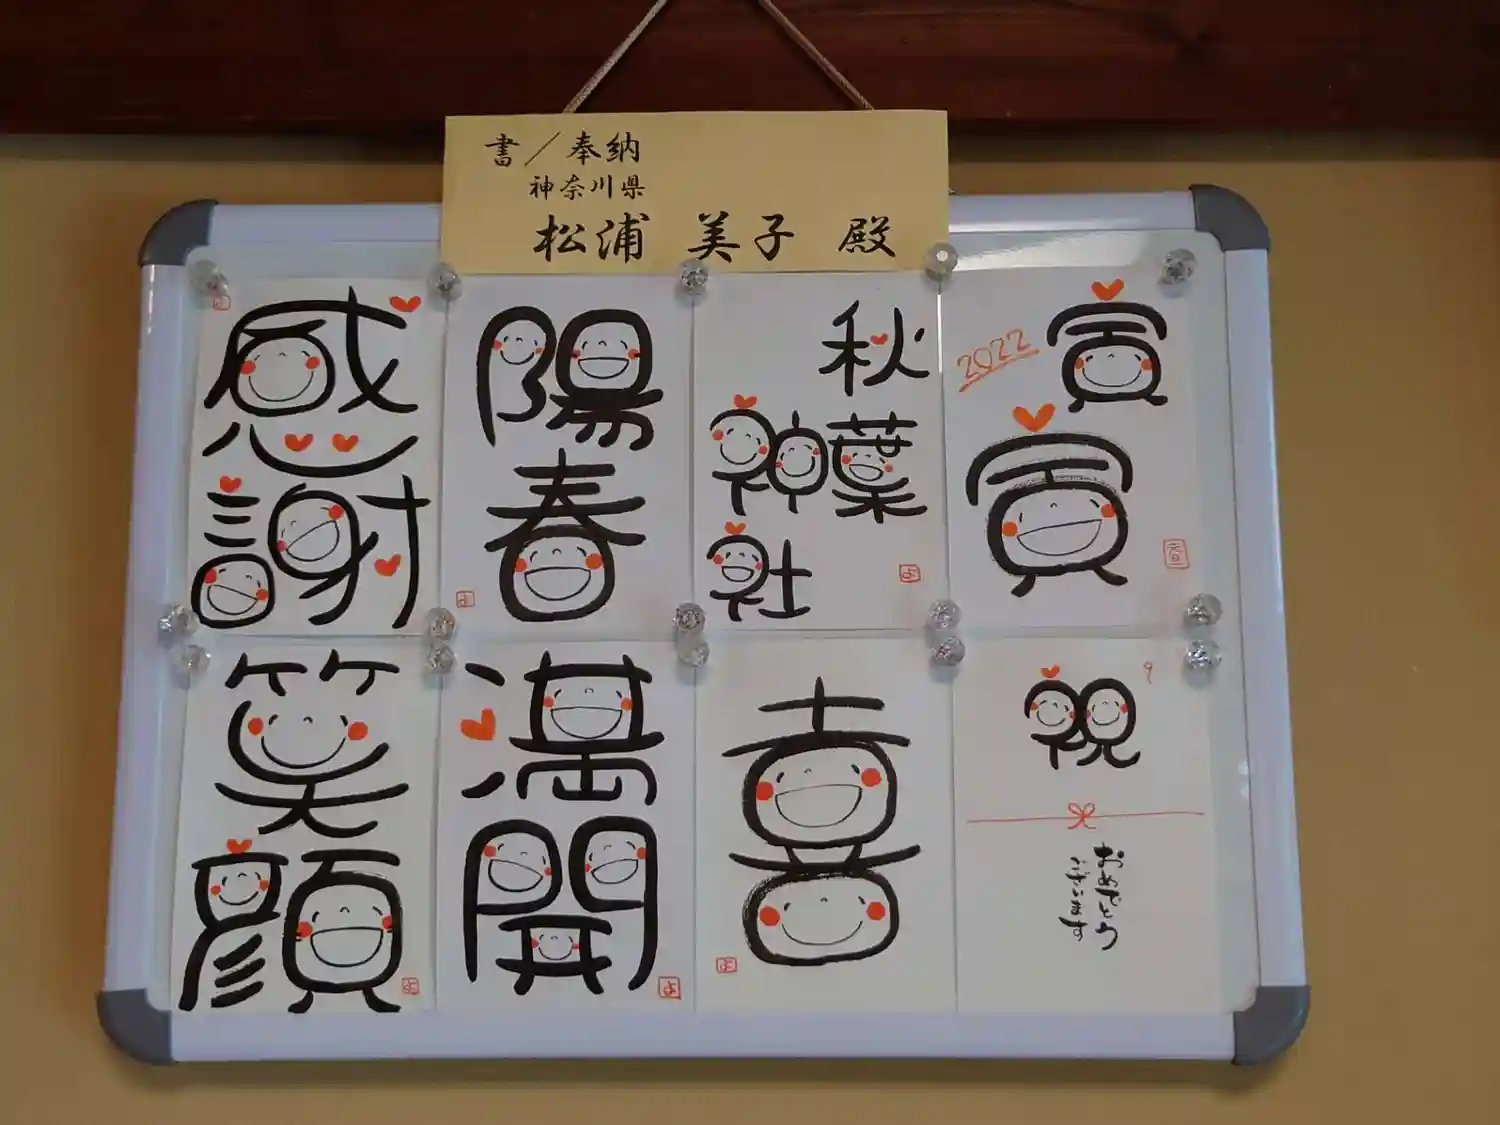 書／奉納
神奈川県
松浦 美子 殿
感
謝
陽
春
秋
葉
神
社
2022
寅
寅
笑
顔
満
開
喜
祝
おめでとう
ございます